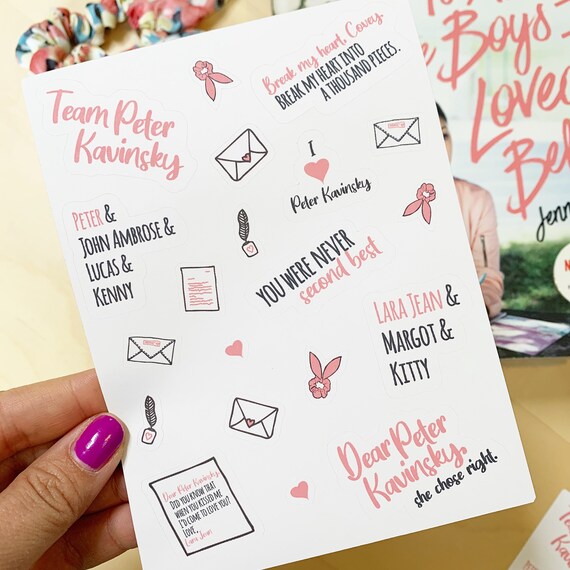 Break my heart, Covey.
BREAK MY HEART INTO
A THOUSAND PIECES.
Team Peter
Kavinsky
I
Peter Kavinsky
PETER &
JOHN AMBROSE &
LUCAS &
KENNY
YOU WERE NEVER
second best
LARA JEAN &
MARGOT &
KITTY
Dear Peter
Kavinsky.
she chose right.
Dear Peter Kavinsky
DID YOU KNOW THAT
WHEN YOU KISSED ME
I'D COME TO LOVE YOU?
LOVE,
Lara Jean
Boys
Loved
Jenn